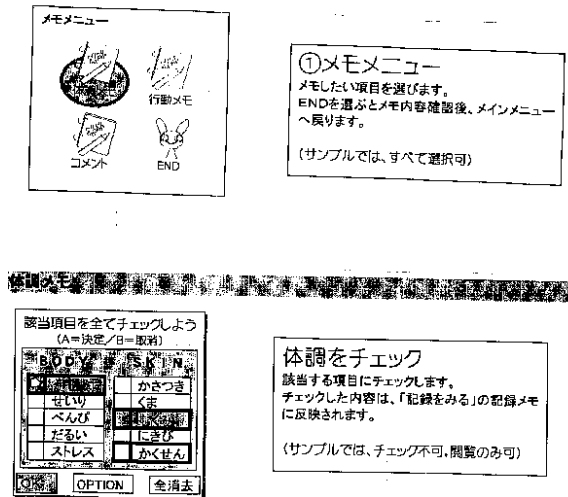 メモメニュー
行動メモ
コメント
END
①メモメニュー
メモしたい項目を選びます。
ENDを選ぶとメモ内容確認後、メインメニュー
へ戻ります。
(サンプルでは、すべて選択可)
体調メモ
該当項目を全てチェックしよう
(A=決定/B=取消)
BODY SKIN
かさつき
せいり くま
べんぴ
だるい にきび
ストレス かくせん
OPTION 全消去
体調をチェック
該当する項目にチェックします。
チェックした内容は、「記録をみる」の記録メモ
に反映されます。
(サンプルでは、チェック不可,閲覧のみ可)